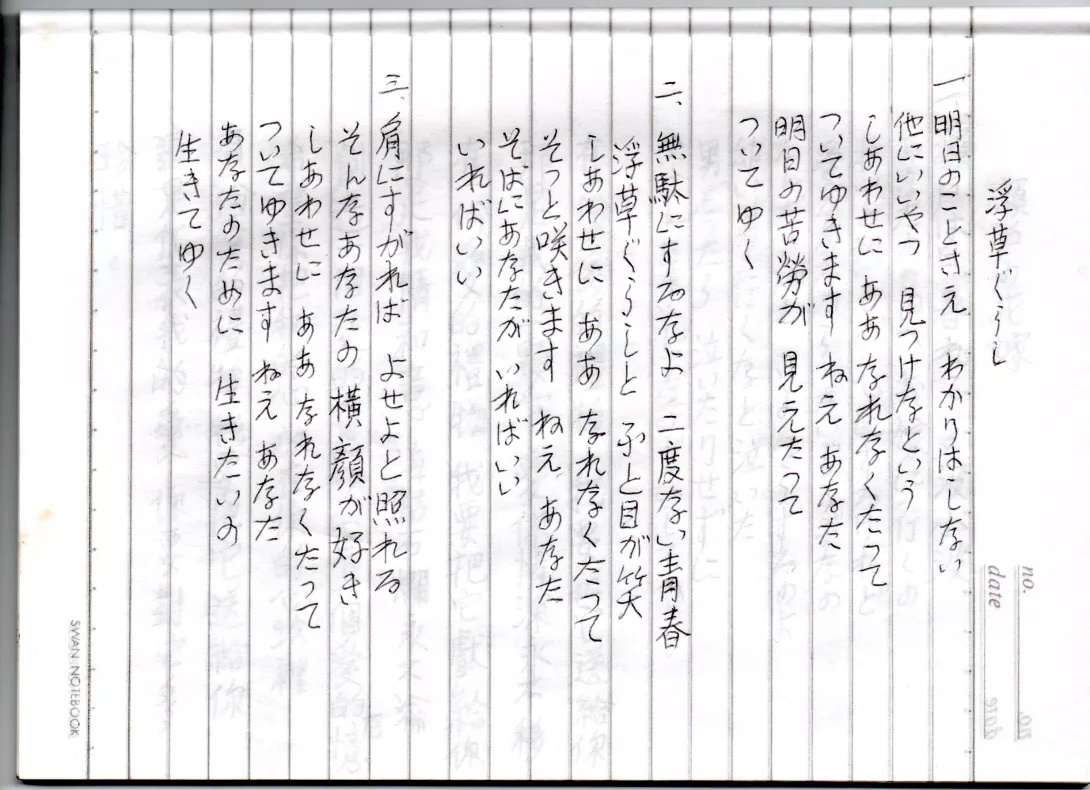 浮草ぐらし
一、明日のことさえ わかりはしない
他にいいやつ 見つけなという
しあわせに ああ なれなくたって
ついてゆきます ねえ あなた
明日の苦労が 見えたって
ついてゆく
二、無駄にするなよ 二度ない青春
浮草ぐらしと ふと目が笑
しあわせに ああ なれなくたって
そっと咲きます ねえ あなた
そばにあなたが いればいい
いればいい
三、肩にすがれば よせよと照れる
そんなあなたの 横顔が好き
しあわせに ああ なれなくたって
ついてゆきます ねえ あなた
あなたのために 生きたいの
生きてゆく
no.
date
SWAN NOTEBOOK